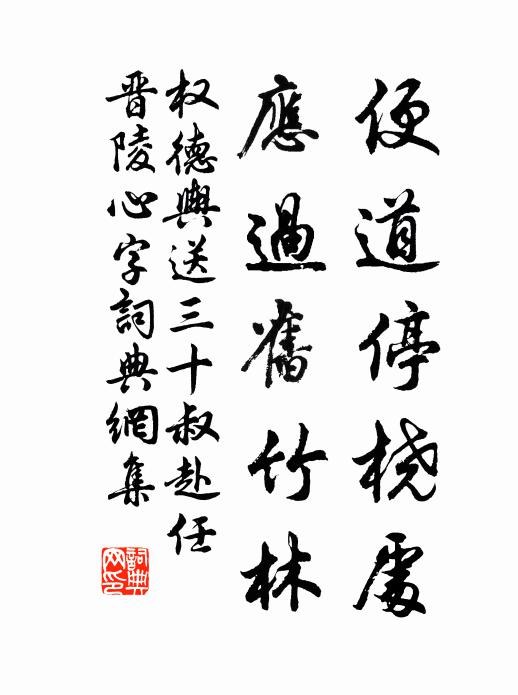 便道停桡處
應過舊竹林
权德輿送三十叔赴任
晋陵心字詞典網集
詞典网印